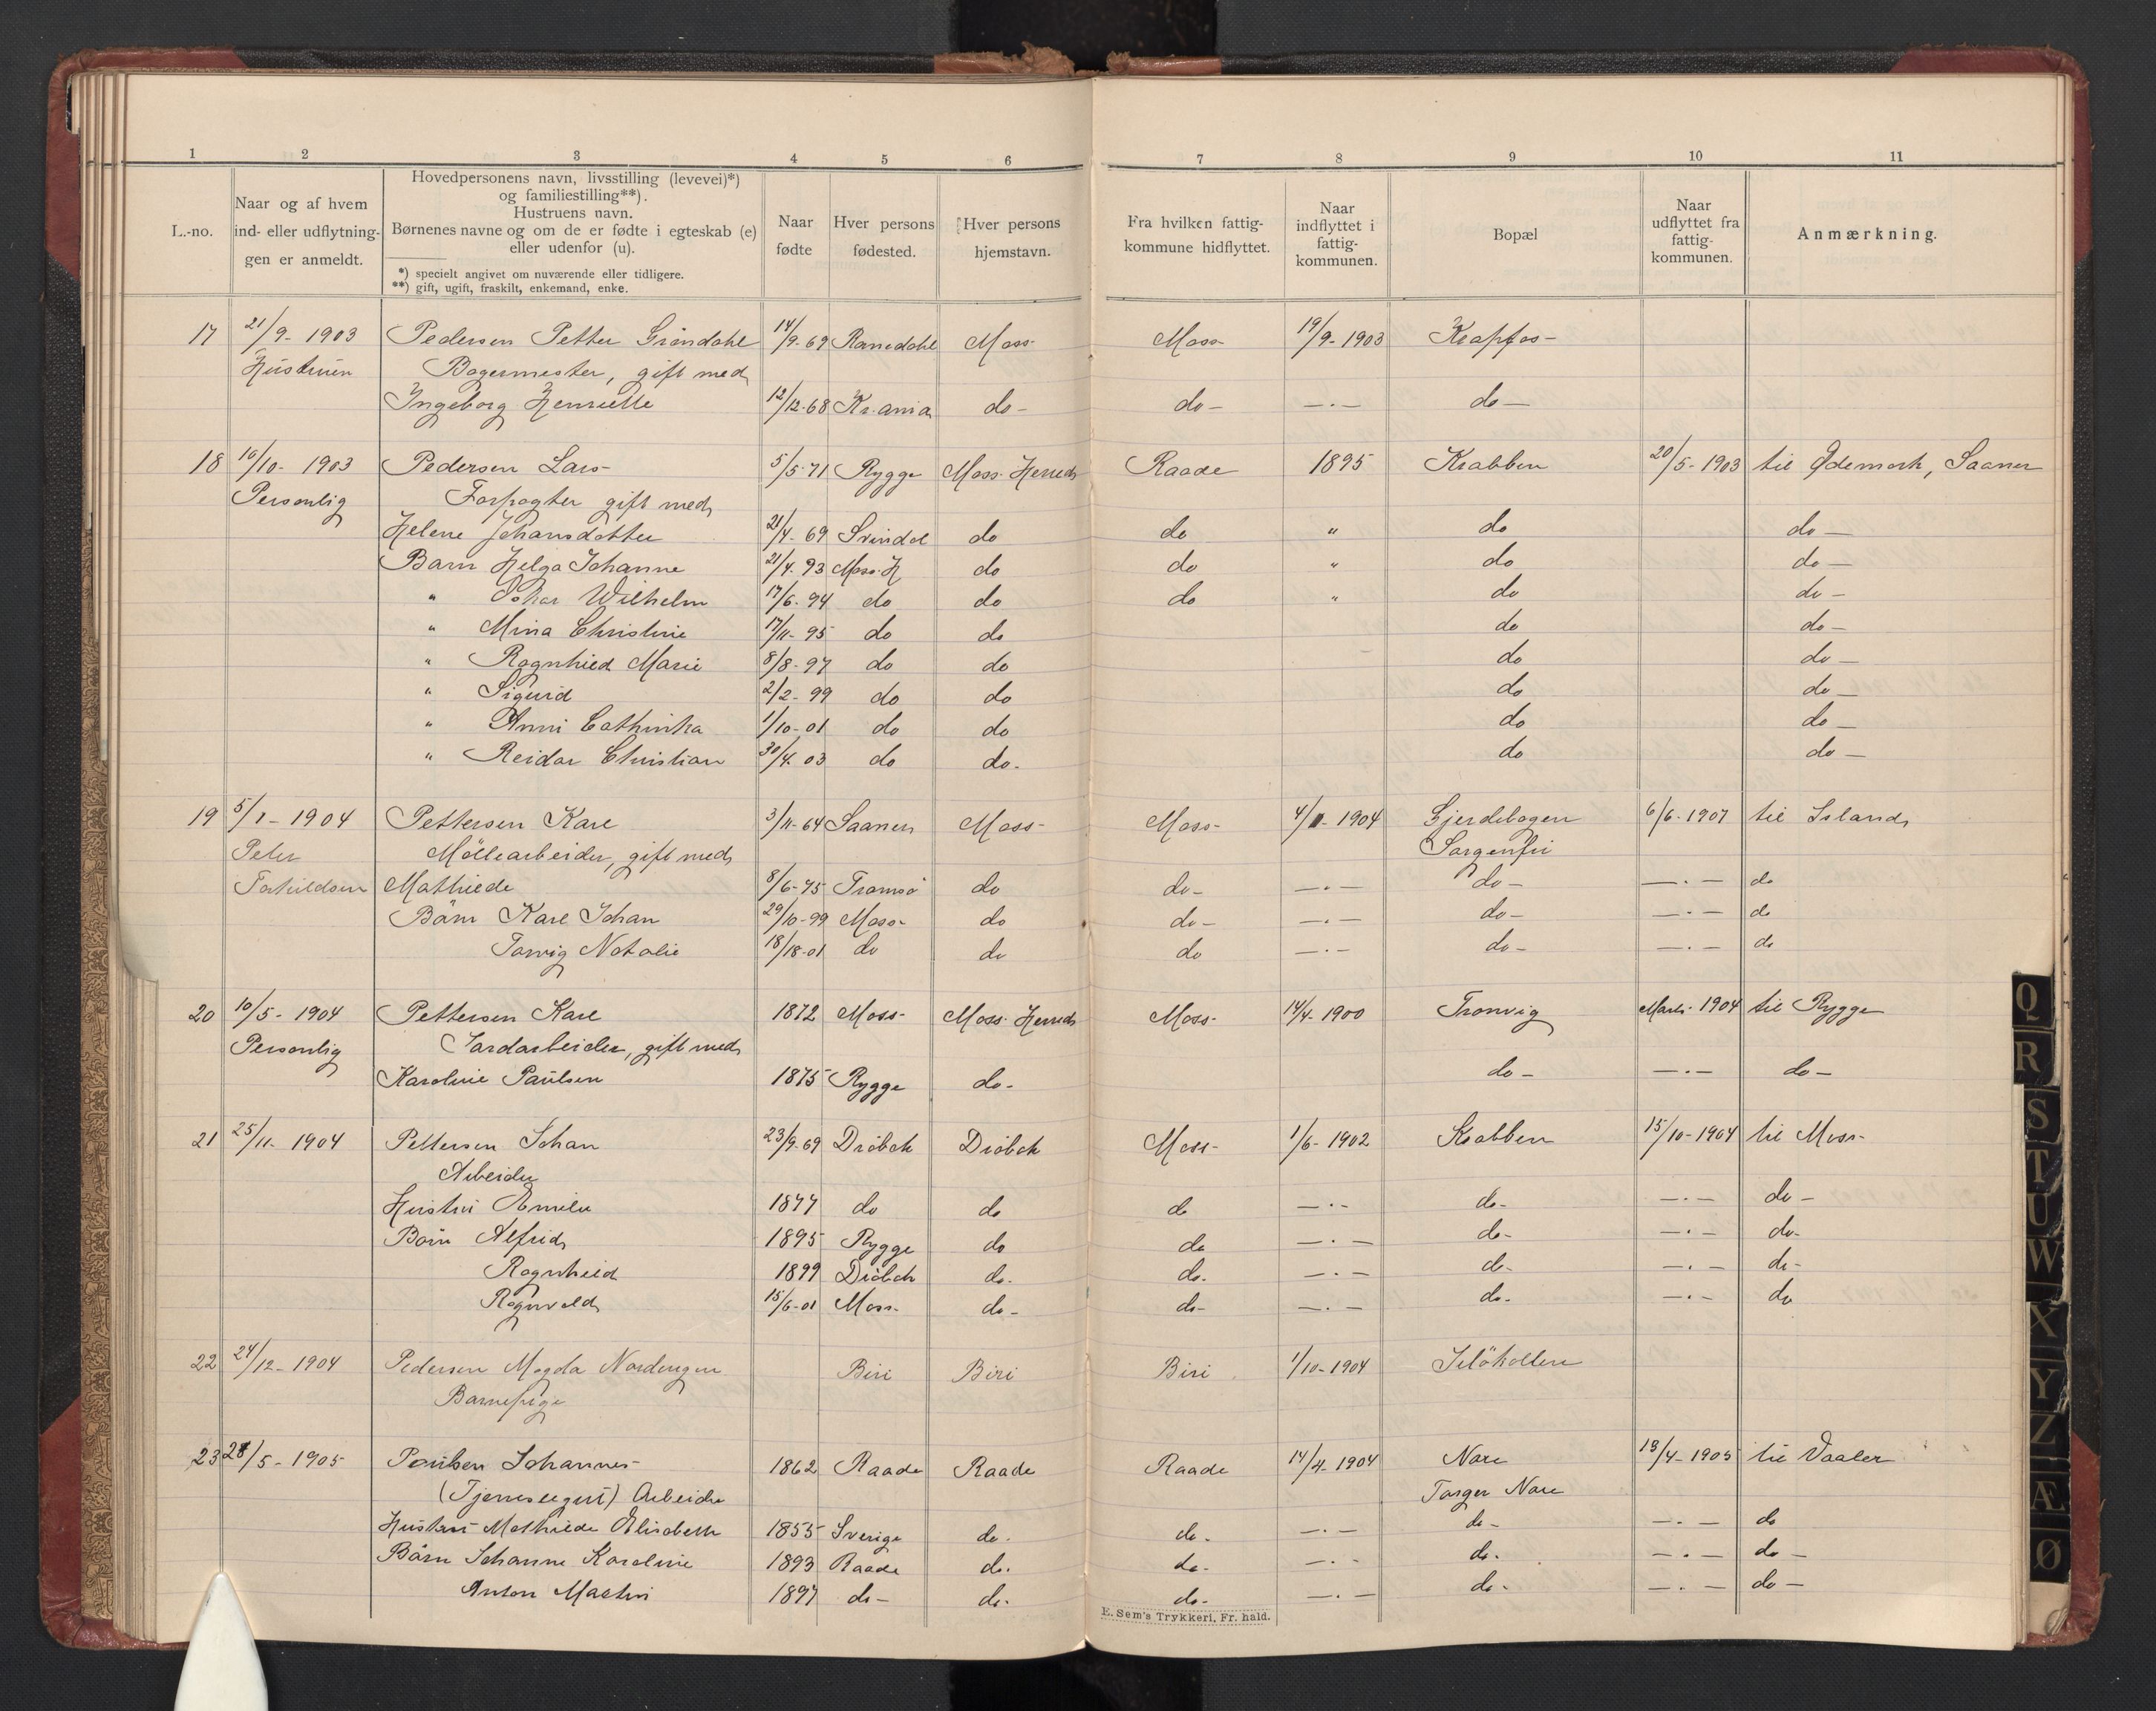 1 2 3 4 5 6 7 8 9 10 11
L.-no.
Naar og af hvem
ind- eller udflytnin-
gen er anmeldt.
Hovedpersonens navn, livsstilling (levevei)*)
og familiestilling**).
Hustruens navn.
Børnenes navne og om de er fødte i egteskab (e)
eller udenfor (u).
*) specielt angivet om nuværende eller tidligere.
**) gift, ugift, fraskilt, enkemand, enke.
Naar
fødte
Hver persons
fødested.
Hver persons
hjemstavn.
Fra hvilken fattig-
kommune hidflyttet.
Naar
indflyttet i
fattig-
kommunen.
Bopæl
Naar
udflyttet fra
fattig-
kommunen.
Anmærkning.
17 21/9- 1903 Pedersen Petter Gröndahl 14/9-69 Ramdahl Moss- Moss- 19/9-1903 Krapfos-
Hustruen Bagermester, gift med
Ingeborg Henriette 12/12-68 Kr.ania do- do- -.- do-
18 10/10- 1903 Pedersen Lars- 5/5-71 Rygge Moss Herred Raade 1895 Krabben 20/5-1903 til Ødemork, Saaner
Personlig Forpagter gift med
Helene Johansdatter 21/4-69 Svindal do do " do do-
Barn Helga Johanne 21/4.93 Moss.H do do " do do-
" Oskar Wilhelm 17/6-94 do do do " do do-
" Mina Christine 17/11-95 do do do do-
" Ragnhild Marie 8/8-97 do do do do-
" Sigurd 2/2-99 do do do do-
" Anni Cathinka 1/10-01 do do do do-
" Reidar Christian 30/4.03 do do- do do-
19 5/1-1904 Pettersen Karl 3/11-64 Saaner Moss- Moss- 4/1-1904 Gjerdebogen 6/6-1907 til Island
Peter Möllearbeider, gift med Sorgenfri
Torkildsen Mathilde 8/6-75 Tromsö do do- -.- do- -.- do
Börn Karl Johan 29/10-99 Moss- do do- -.- do- -.- do
Solveig Natalie 18/18-01 do do do -.- do- -.- do
20 10/5-1904 Pettersen Karl 1872 Moss- Moss Herred Moss- 14/4-1900 Tronvig Marts-1904 til Rygge
Personlig Jordarbeider, gift med
Karoline Paulsen 1875 Rygge do- do- -.- do-
21 25/11-1904 Pettersen Johan 23/9-69 Dröbak Dröbak Moss- 1/6-1902 Krabben 15/10-1904 til Moss-
Arbeider
Hustru Emilie 1877 do do do -.- do- -.- do-
Börn Alfrid 1895 Rygge do do -.- do- -.- do-
Ragnhild 1899 Dröbak do- do- -.- do- -.- do-
Ragnvald 15/6-01 Moss- do- do- -.- do- -.- do
22 24/12-1904 Pedersen Magda Nordengen Biri Biri Biri 1/10-1904 Jelökollen
Barnepige
23 28/5-1905 Paulsen Johannes- 1862 Raade Raade Raade 14/4-1904 Nore 13/4-1905 til Vaaler
(Tjenestegut) Arbeider Torger Nore
Hustru Mathilde Elisabeth 1855 Sverige do- do- -.- do- -.- do
Börn Johanne Karoline 1893 Raade do. do- -.- do- -.- do-
Anton Martin 1897 do- do- do- -.- do- -.- do-
E. Sem's Trykkeri, Fr. hald.
Q
R
S
T
U
W
X
Y
Z
Æ
Ø